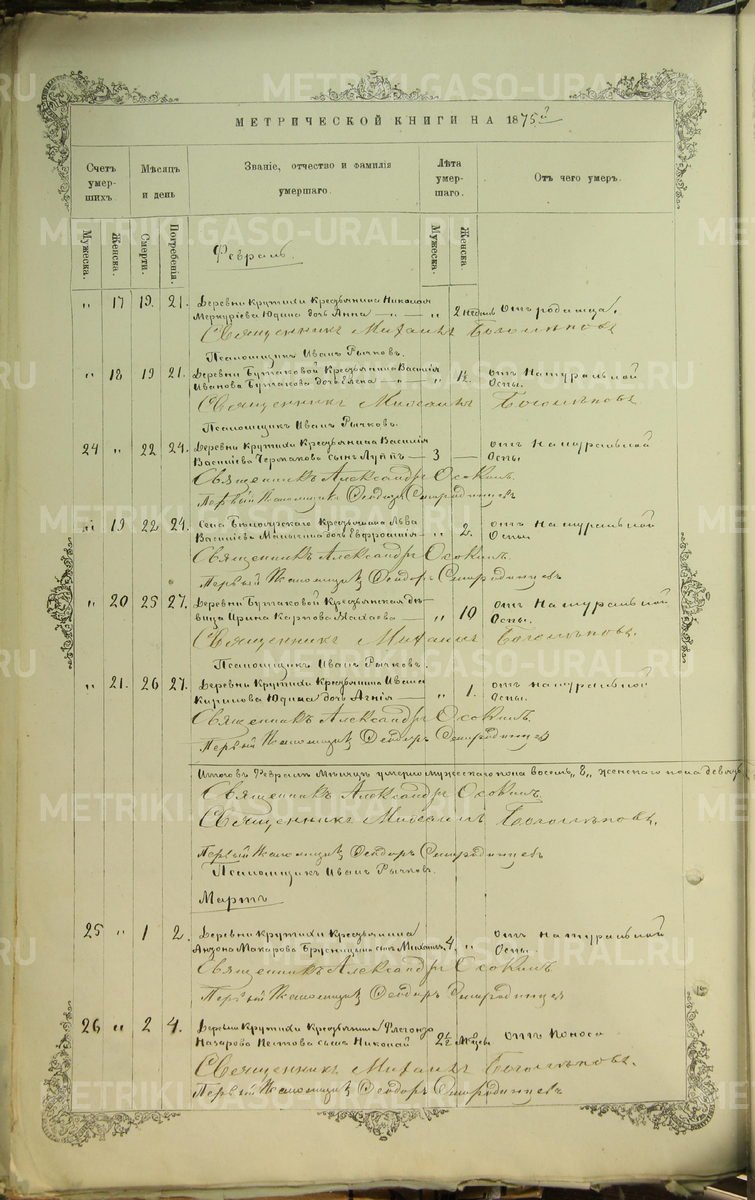 METRIKI.GASO-URAL.RU
МЕТРИЧЕСКОЙ КНИГИ НА 1875 г
Счетъ умер- шихъ.
Мѣсяцъ и день
Званіе, отчество и фамилія умершаго.
Лѣта умер- шаго.
Отъ чего умеръ.
Мужеска. Женска. Смерти. Погребенія. Мужеска. Женска
Февраль.
" 17 19. 21. Деревни Крутихи Крестьянина Николая
Меркуріева Юдина дочь Анна " 2 недѣль Отъ родимца.
Священникъ Михаилъ
Псаломщикъ Иванъ Рычковъ.
" 18 19 21. Деревни Бутаковой Крестьянина Василія отъ Натуральной
Иванова Бутакова дочь Елена " 1½ Оспы.
Священникъ Михаилъ
Псаломщикъ Иванъ Рычковъ.
24 " 22 24. Деревни Крутихи Крестьянина Василія отъ Натуральной
Василіева сынъ Луппъ 3 Оспы.
Священникъ Александръ Осокинъ.
Первый Псаломщикъ Ѳеодоръ Смородинцевъ
" 19 22 24. Села Крестьянина Льва отъ натуральной
Василіева дочь Евфросинія " 2. Оспы.
Священникъ Александръ Осокинъ.
Первый Псаломщикъ Ѳеодоръ Смородинцевъ
" 20 25 27. Деревни Бутаковой Крестьянская дѣ- отъ Натуральной
вица Ирина Карпова " 10 Оспы.
Священникъ Михаилъ
Псаломщикъ Иванъ Рычковъ.
" 21. 26 27. Деревни Крутихи Крестьянина Ивана отъ натуральной
Кирилова Юдина дочь Агнія " 1. Оспы.
Священникъ Александръ Осокинъ.
Первый Псаломщикъ Ѳеодоръ Смородинцевъ
Итого въ Февралѣ Мѣсяцѣ умерло мужескаго пола восемь "8" женскаго пола девять
Священникъ Александръ Осокинъ.
Священникъ Михаилъ
Первый Псаломщикъ Ѳеодоръ Смородинцевъ
Псаломщикъ Иванъ Рычковъ.
Мартъ
25 " 1 2. Деревни Крутихи Крестьянина отъ натуральной
Макарова Брусницына сынъ Михаилъ. 4 " Оспы.
Священникъ Александръ Осокинъ
Первый Псаломщикъ Ѳеодоръ Смородинцевъ
26 " 2 4. Деревни Крутихи Крестьянина Флегонта
Назарова Пестова сынъ Николай отъ Поноса
Священникъ Михаилъ
Первый Псаломщикъ Ѳеодоръ Смородинцевъ